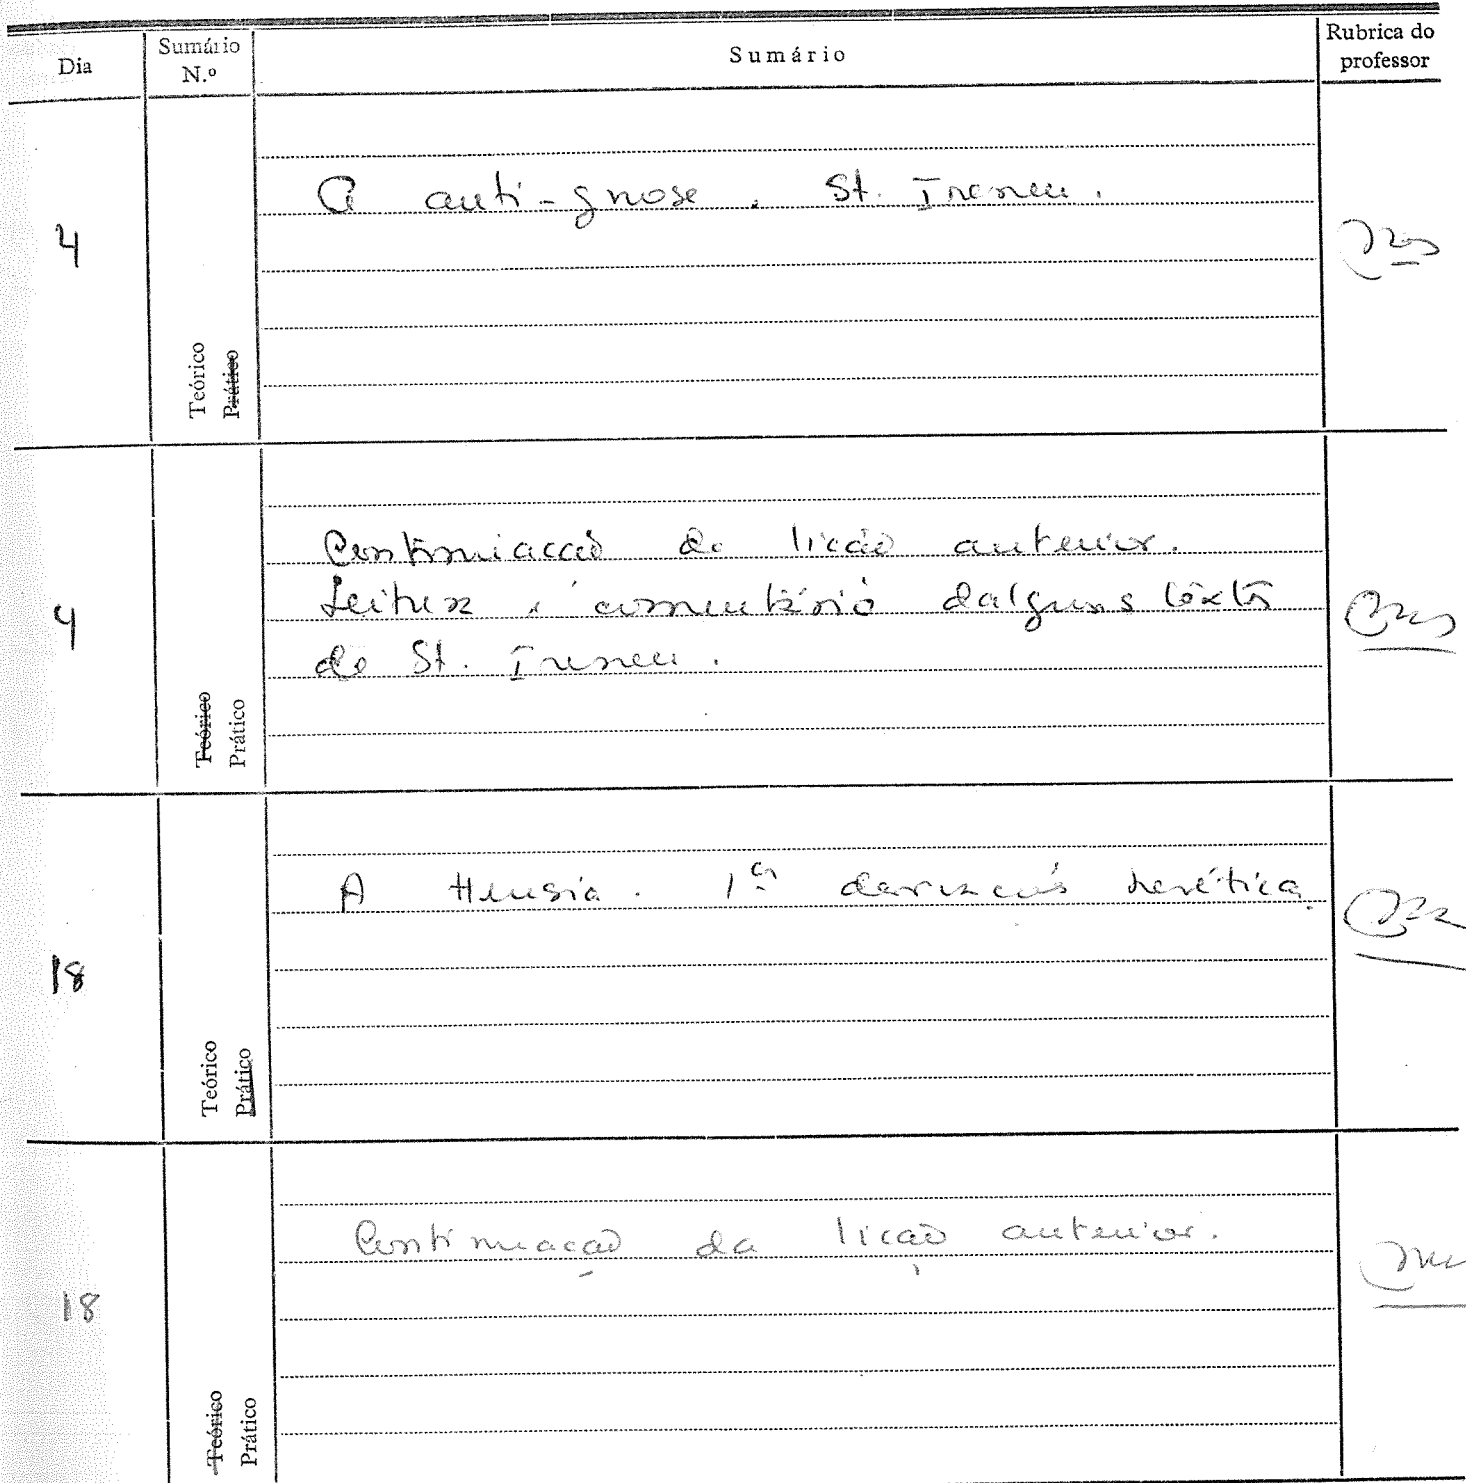 Dia
Sumário
N.º
Sumário
Rubrica do
professor
4
Teórico
Prático
A anti-gnose. St. Ireneu.
4
Teórico
Prático
Continuiaccão da licão anterior.
Leitura e comentário dalguns têxtos
de St. Ireneu.
18
Teórico
Prático
A Heresia. 1ª herética.
18
Teórico
Prático
Continuacão da licão anterior.